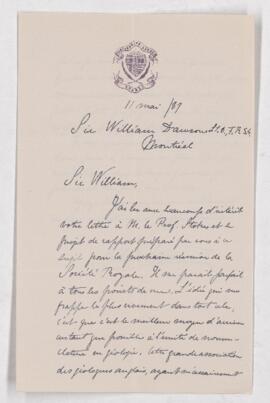 11 mai /87
Sir William Dawson
Montréal
Sir William,
J'ai lu avec beaucoup d'intérêt
votre lettre à M. le Prof. Stokes et le
projet de rapport préparé par vous à ce
sujet pour la prochaine réunion de la
Société Royale. Il me parait parfait
à tous les points de vue. L'idée qui me
frappe le plus vivement dans tout cela,
c'est que c'est le meilleur moyen d'arriver
autant que possible à l'unité de nomen-
clature en géologie. Cette grande association
des géologues anglais, ayant nécessairement